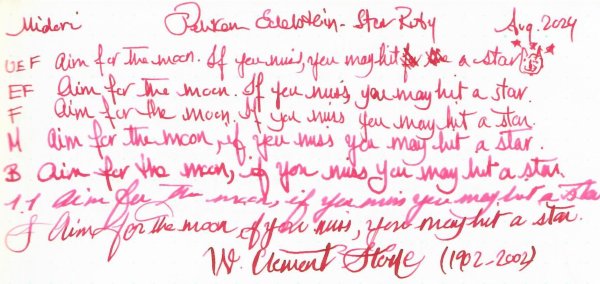 Midori Pelikan Edelstein - Star Ruby Aug. 2024
UEF Aim for the moon. If you miss, you may hit a star
EF Aim for the moon. If you miss, you may hit a star.
F Aim for the moon. If you miss you may hit a star.
M Aim for the moon, if you miss you may hit a star.
B Aim for the moon, if you miss you may hit a star.
1.1 Aim for the moon, if you miss you may hit a sta
J Aim for the moon, if you miss, you may hit a star.
W. Clement Stone (1902-2002)